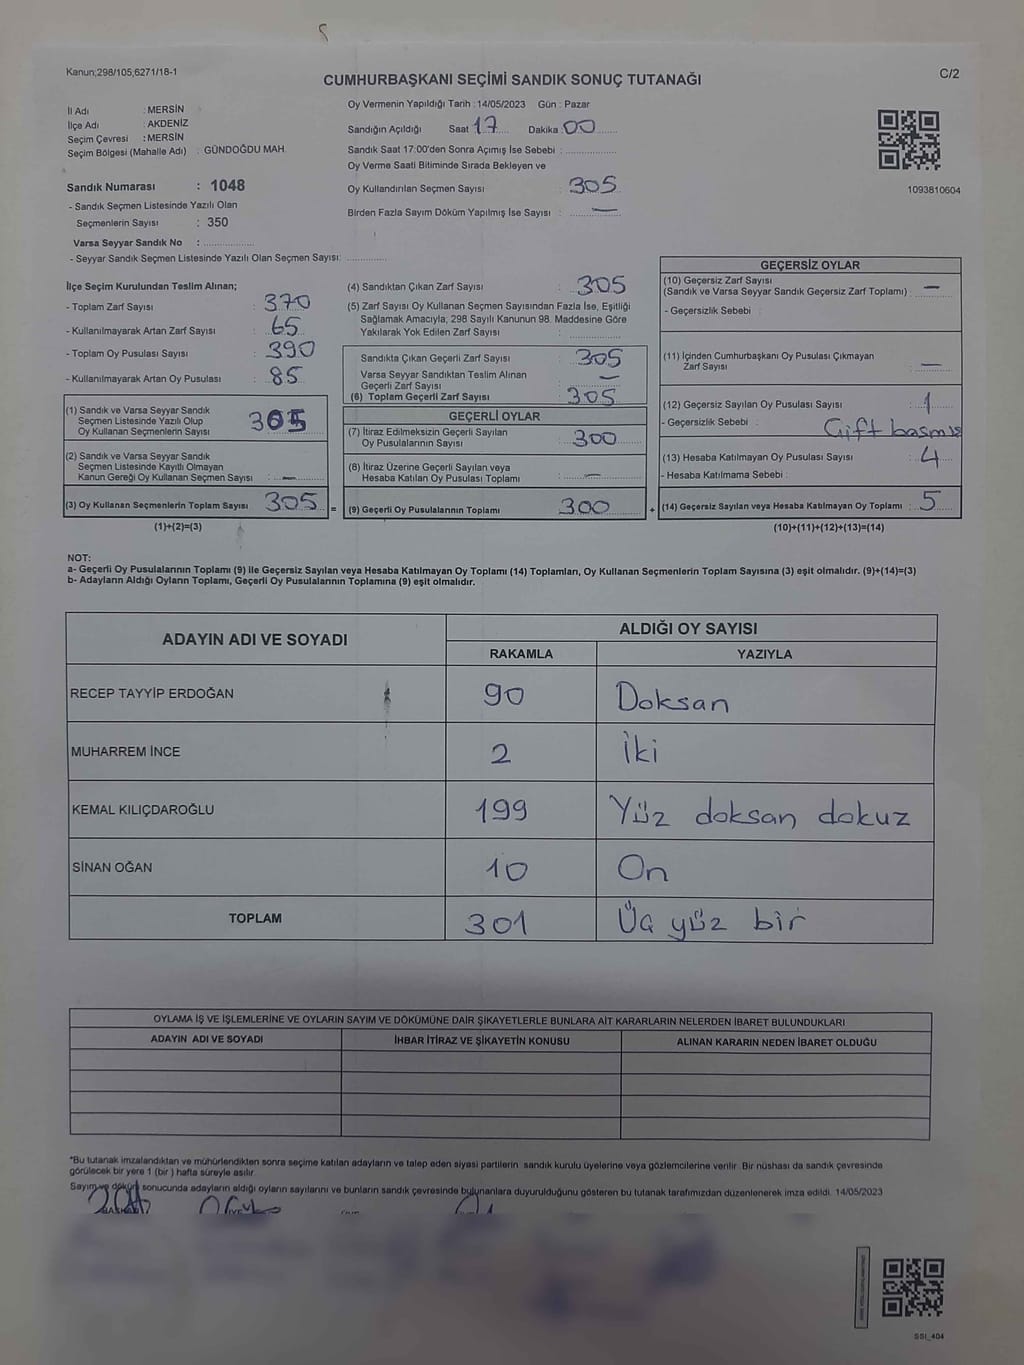 Kanun;298/105,6271/18-1
C/2
CUMHURBAŞKANI SEÇİMİ SANDIK SONUÇ TUTANAĞI
İl Adı : MERSİN
İlçe Adı : AKDENİZ
Seçim Çevresi : MERSİN
Seçim Bölgesi (Mahalle Adı) : GÜNDOĞDU MAH.
Oy Vermenin Yapıldığı Tarih : 14/05/2023 Gün : Pazar
Sandığın Açıldığı Saat 17 Dakika : 00
Sandık Saat 17:00'den Sonra Açımış İse Sebebi :
Oy Verme Saati Bitiminde Sırada Bekleyen ve
Oy Kullandırılan Seçmen Sayısı : 305
Birden Fazla Sayım Döküm Yapılmış İse Sayısı : —
1093810604
Sandık Numarası : 1048
- Sandık Seçmen Listesinde Yazılı Olan
Seçmenlerin Sayısı : 350
Varsa Seyyar Sandık No :
- Seyyar Sandık Seçmen Listesinde Yazılı Olan Seçmen Sayısı:
İlçe Seçim Kurulundan Teslim Alınan;
- Toplam Zarf Sayısı : 370
- Kullanılmayarak Artan Zarf Sayısı : 65
- Toplam Oy Pusulası Sayısı : 390
- Kullanılmayarak Artan Oy Pusulası : 85
(1) Sandık ve Varsa Seyyar Sandık
Seçmen Listesinde Yazılı Olup
Oy Kullanan Seçmenlerin Sayısı 305
(2) Sandık ve Varsa Seyyar Sandık
Seçmen Listesinde Kayıtlı Olmayan
Kanun Gereği Oy Kullanan Seçmen Sayısı : —
(3) Oy Kullanan Seçmenlerin Toplam Sayısı 305 =
(1)+(2)=(3)
(4) Sandıktan Çıkan Zarf Sayısı : 305
(5) Zarf Sayısı Oy Kullanan Seçmen Sayısından Fazla İse, Eşitliği
Sağlamak Amacıyla; 298 Sayılı Kanunun 98. Maddesine Göre
Yakılarak Yok Edilen Zarf Sayısı :
Sandıkta Çıkan Geçerli Zarf Sayısı : 305
Varsa Seyyar Sandıktan Teslim Alınan
Geçerli Zarf Sayısı : —
(6) Toplam Geçerli Zarf Sayısı : 305
GEÇERLİ OYLAR
(7) İtiraz Edilmeksizin Geçerli Sayılan
Oy Pusulalarının Sayısı : 300
(8) İtiraz Üzerine Geçerli Sayılan veya
Hesaba Katılan Oy Pusulası Toplamı : —
(9) Geçerli Oy Pusulalarının Toplamı : 300 +
GEÇERSİZ OYLAR
(10) Geçersiz Zarf Sayısı
(Sandık ve Varsa Seyyar Sandık Geçersiz Zarf Toplamı) : —
- Geçersizlik Sebebi :
(11) İçinden Cumhurbaşkanı Oy Pusulası Çıkmayan
Zarf Sayısı : —
(12) Geçersiz Sayılan Oy Pusulası Sayısı : 1
- Geçersizlik Sebebi : Çift basmış
(13) Hesaba Katılmayan Oy Pusulası Sayısı : 4
- Hesaba Katılmama Sebebi :
(14) Geçersiz Sayılan veya Hesaba Katılmayan Oy Toplamı : 5
(10)+(11)+(12)+(13)=(14)
NOT:
a- Geçerli Oy Pusulalarının Toplamı (9) ile Geçersiz Sayılan veya Hesaba Katılmayan Oy Toplamı (14) Toplamları, Oy Kullanan Seçmenlerin Toplam Sayısına (3) eşit olmalıdır. (9)+(14)=(3)
b- Adayların Aldığı Oyların Toplamı, Geçerli Oy Pusulalarının Toplamına (9) eşit olmalıdır.
ADAYIN ADI VE SOYADI ALDIĞI OY SAYISI
RAKAMLA YAZIYLA
RECEP TAYYİP ERDOĞAN 90 Doksan
MUHARREM İNCE 2 İki
KEMAL KILIÇDAROĞLU 199 Yüz doksan dokuz
SİNAN OĞAN 10 On
TOPLAM 301 Üç yüz bir
OYLAMA İŞ VE İŞLEMLERİNE VE OYLARIN SAYIM VE DÖKÜMÜNE DAİR ŞİKAYETLERLE BUNLARA AİT KARARLARIN NELERDEN İBARET BULUNDUKLARI
ADAYIN ADI VE SOYADI İHBAR İTİRAZ VE ŞİKAYETİN KONUSU ALINAN KARARIN NEDEN İBARET OLDUĞU
*Bu tutanak imzalandıktan ve mühürlendikten sonra seçime katılan adayların ve talep eden siyasi partilerin sandık kurulu üyelerine veya gözlemcilerine verilir. Bir nüshası da sandık çevresinde
görülecek bir yere 1 (bir ) hafta süreyle asılır.
Sayım ve döküm sonucunda adayların aldığı oyların sayılarını ve bunların sandık çevresinde bulunanlara duyurulduğunu gösteren bu tutanak tarafımızdan düzenlenerek imza edildi. 14/05/2023
SSI_404